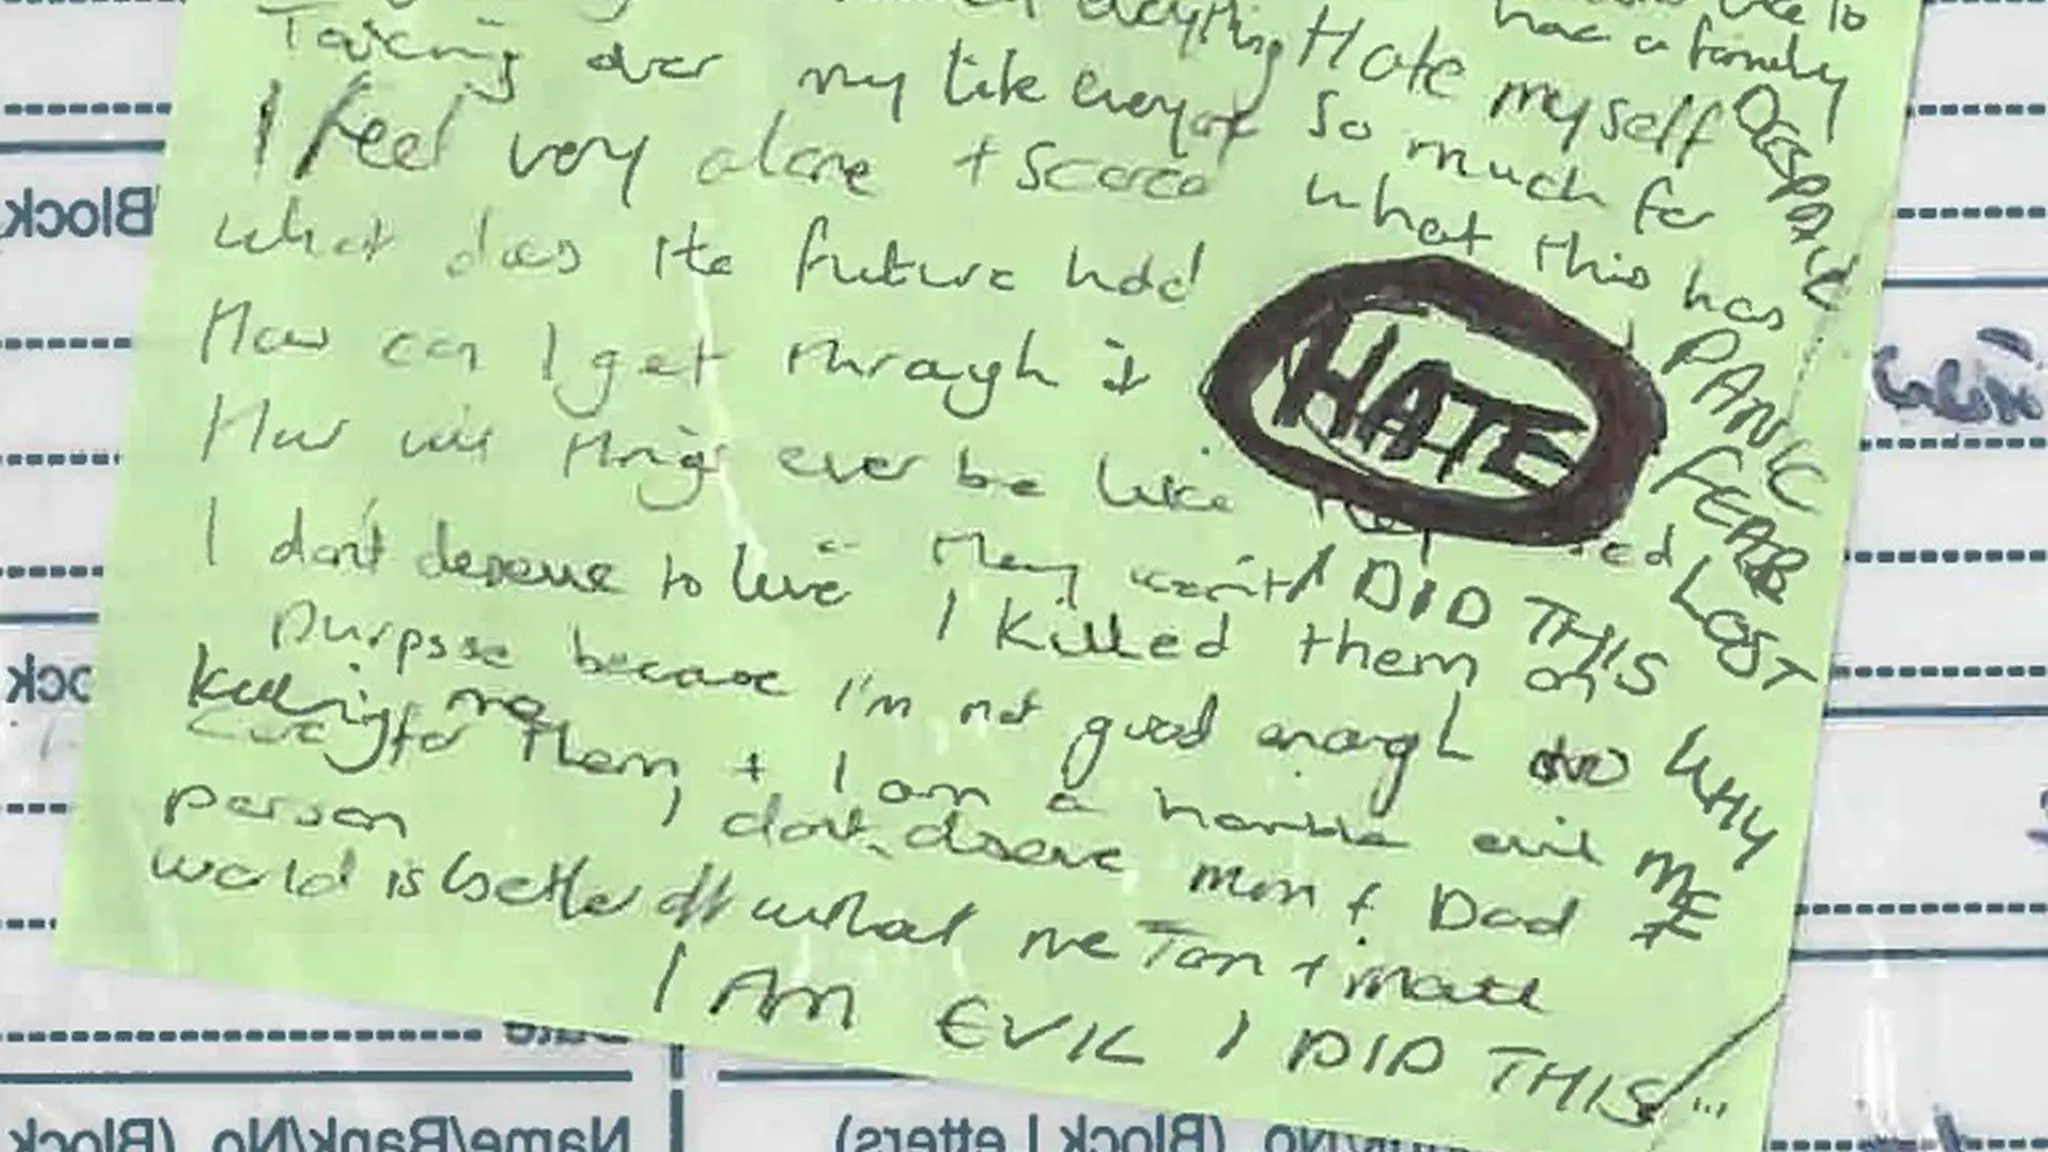 everything Hate myself
have a family
Taking over my life everyday so much for
I feel very alone + scared what this has
what does the future hold
How can I get through it
How will things ever be like
HATE
DESPAIR
PANIC
FEAR
LOST
WHY
ME
I don't deserve to live They won't I DID THIS
I killed them on
purpose because I'm not good enough to
care for them + I am a horrible evil
person I don't deserve mum + Dad
world is better off without me Tom + Matt
killing me
I AM EVIL I DID THIS
Block
Date
Name/Bank/No. (Block
No. (Block Letters)